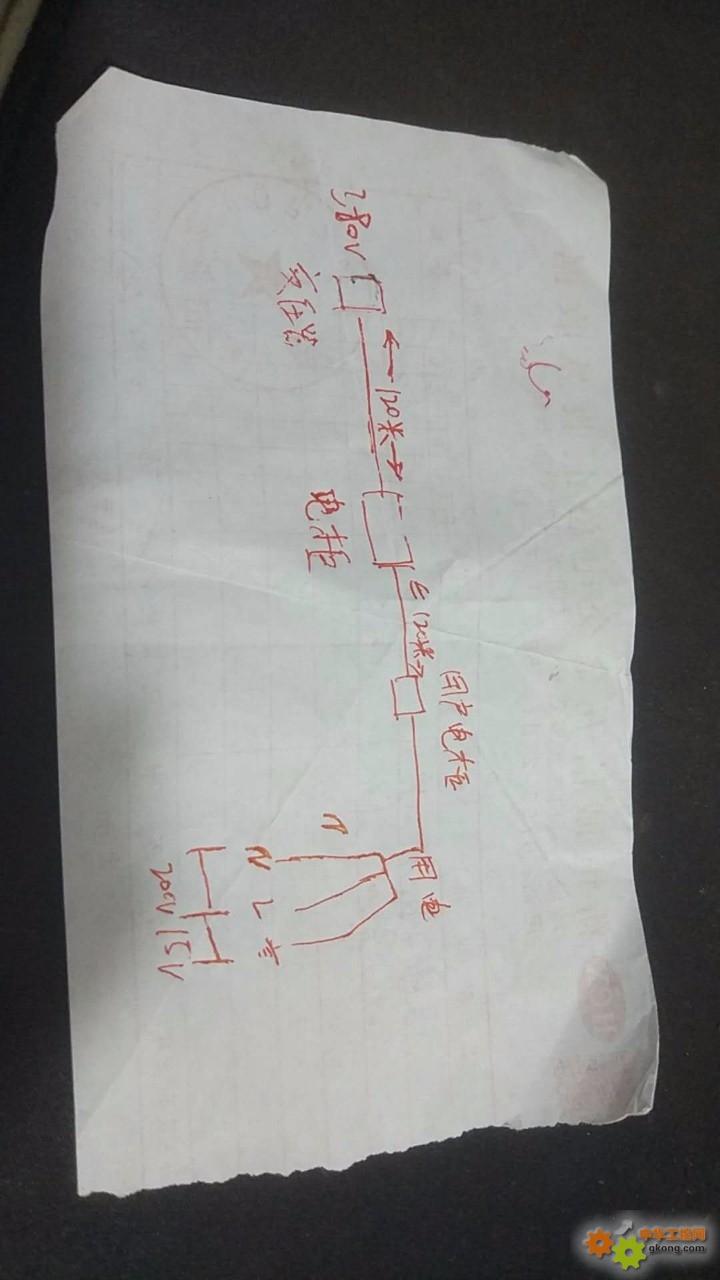 380V
变压器
120米
电柜
120米
用户电柜
用电
N
L
200V
15V
中华工控网
gkong.com